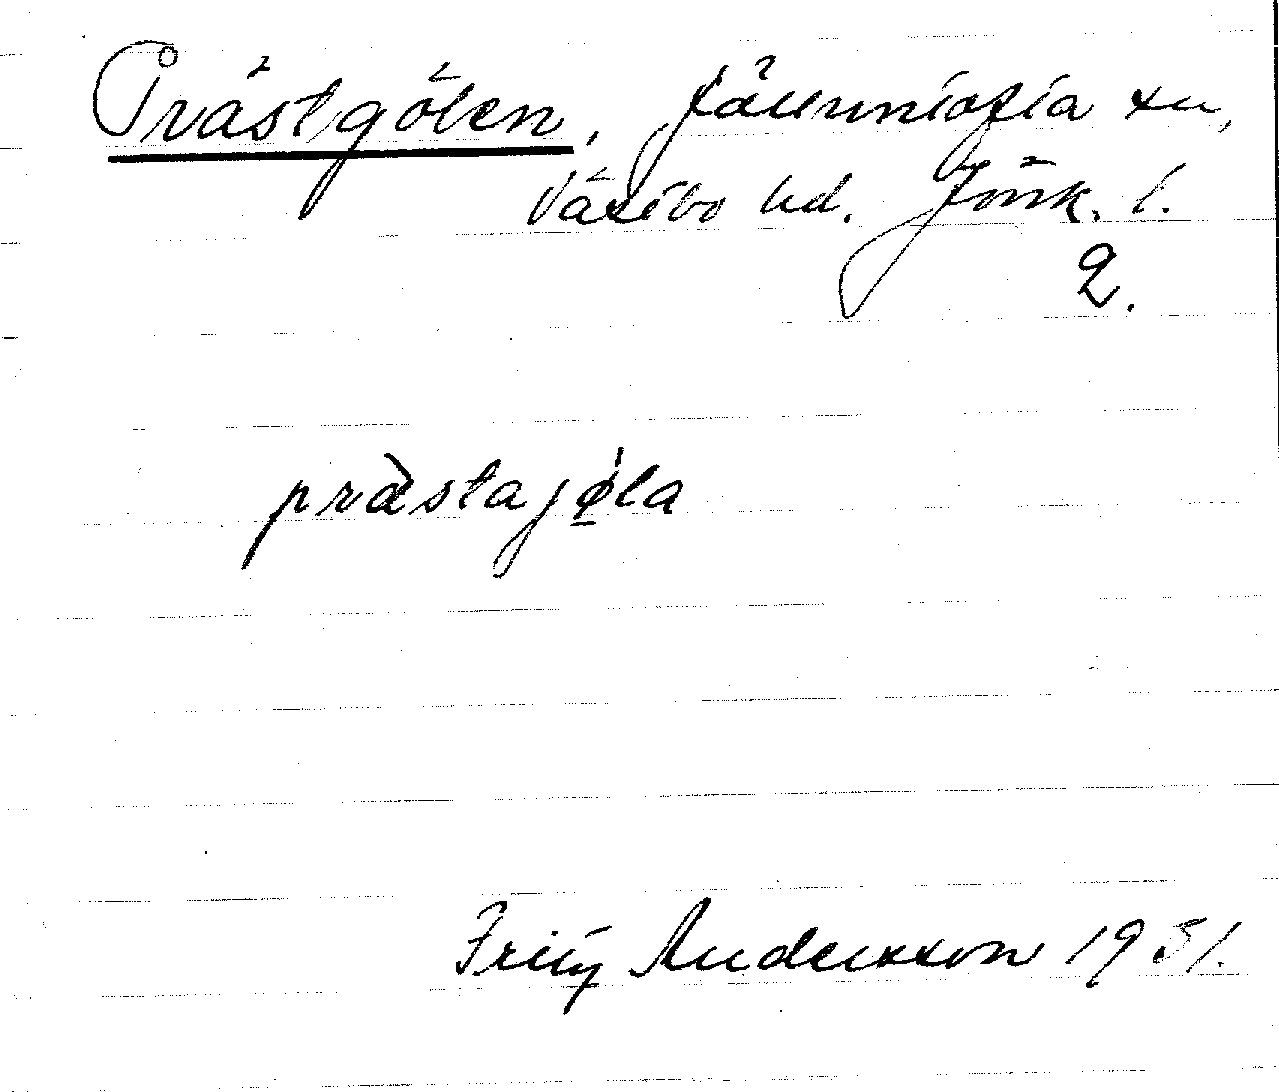 Prästgölen, Fälerumiofia sn,
Västbo hd. Jönk. l.
2.
prästajöla
Fritz Andersson 1951.